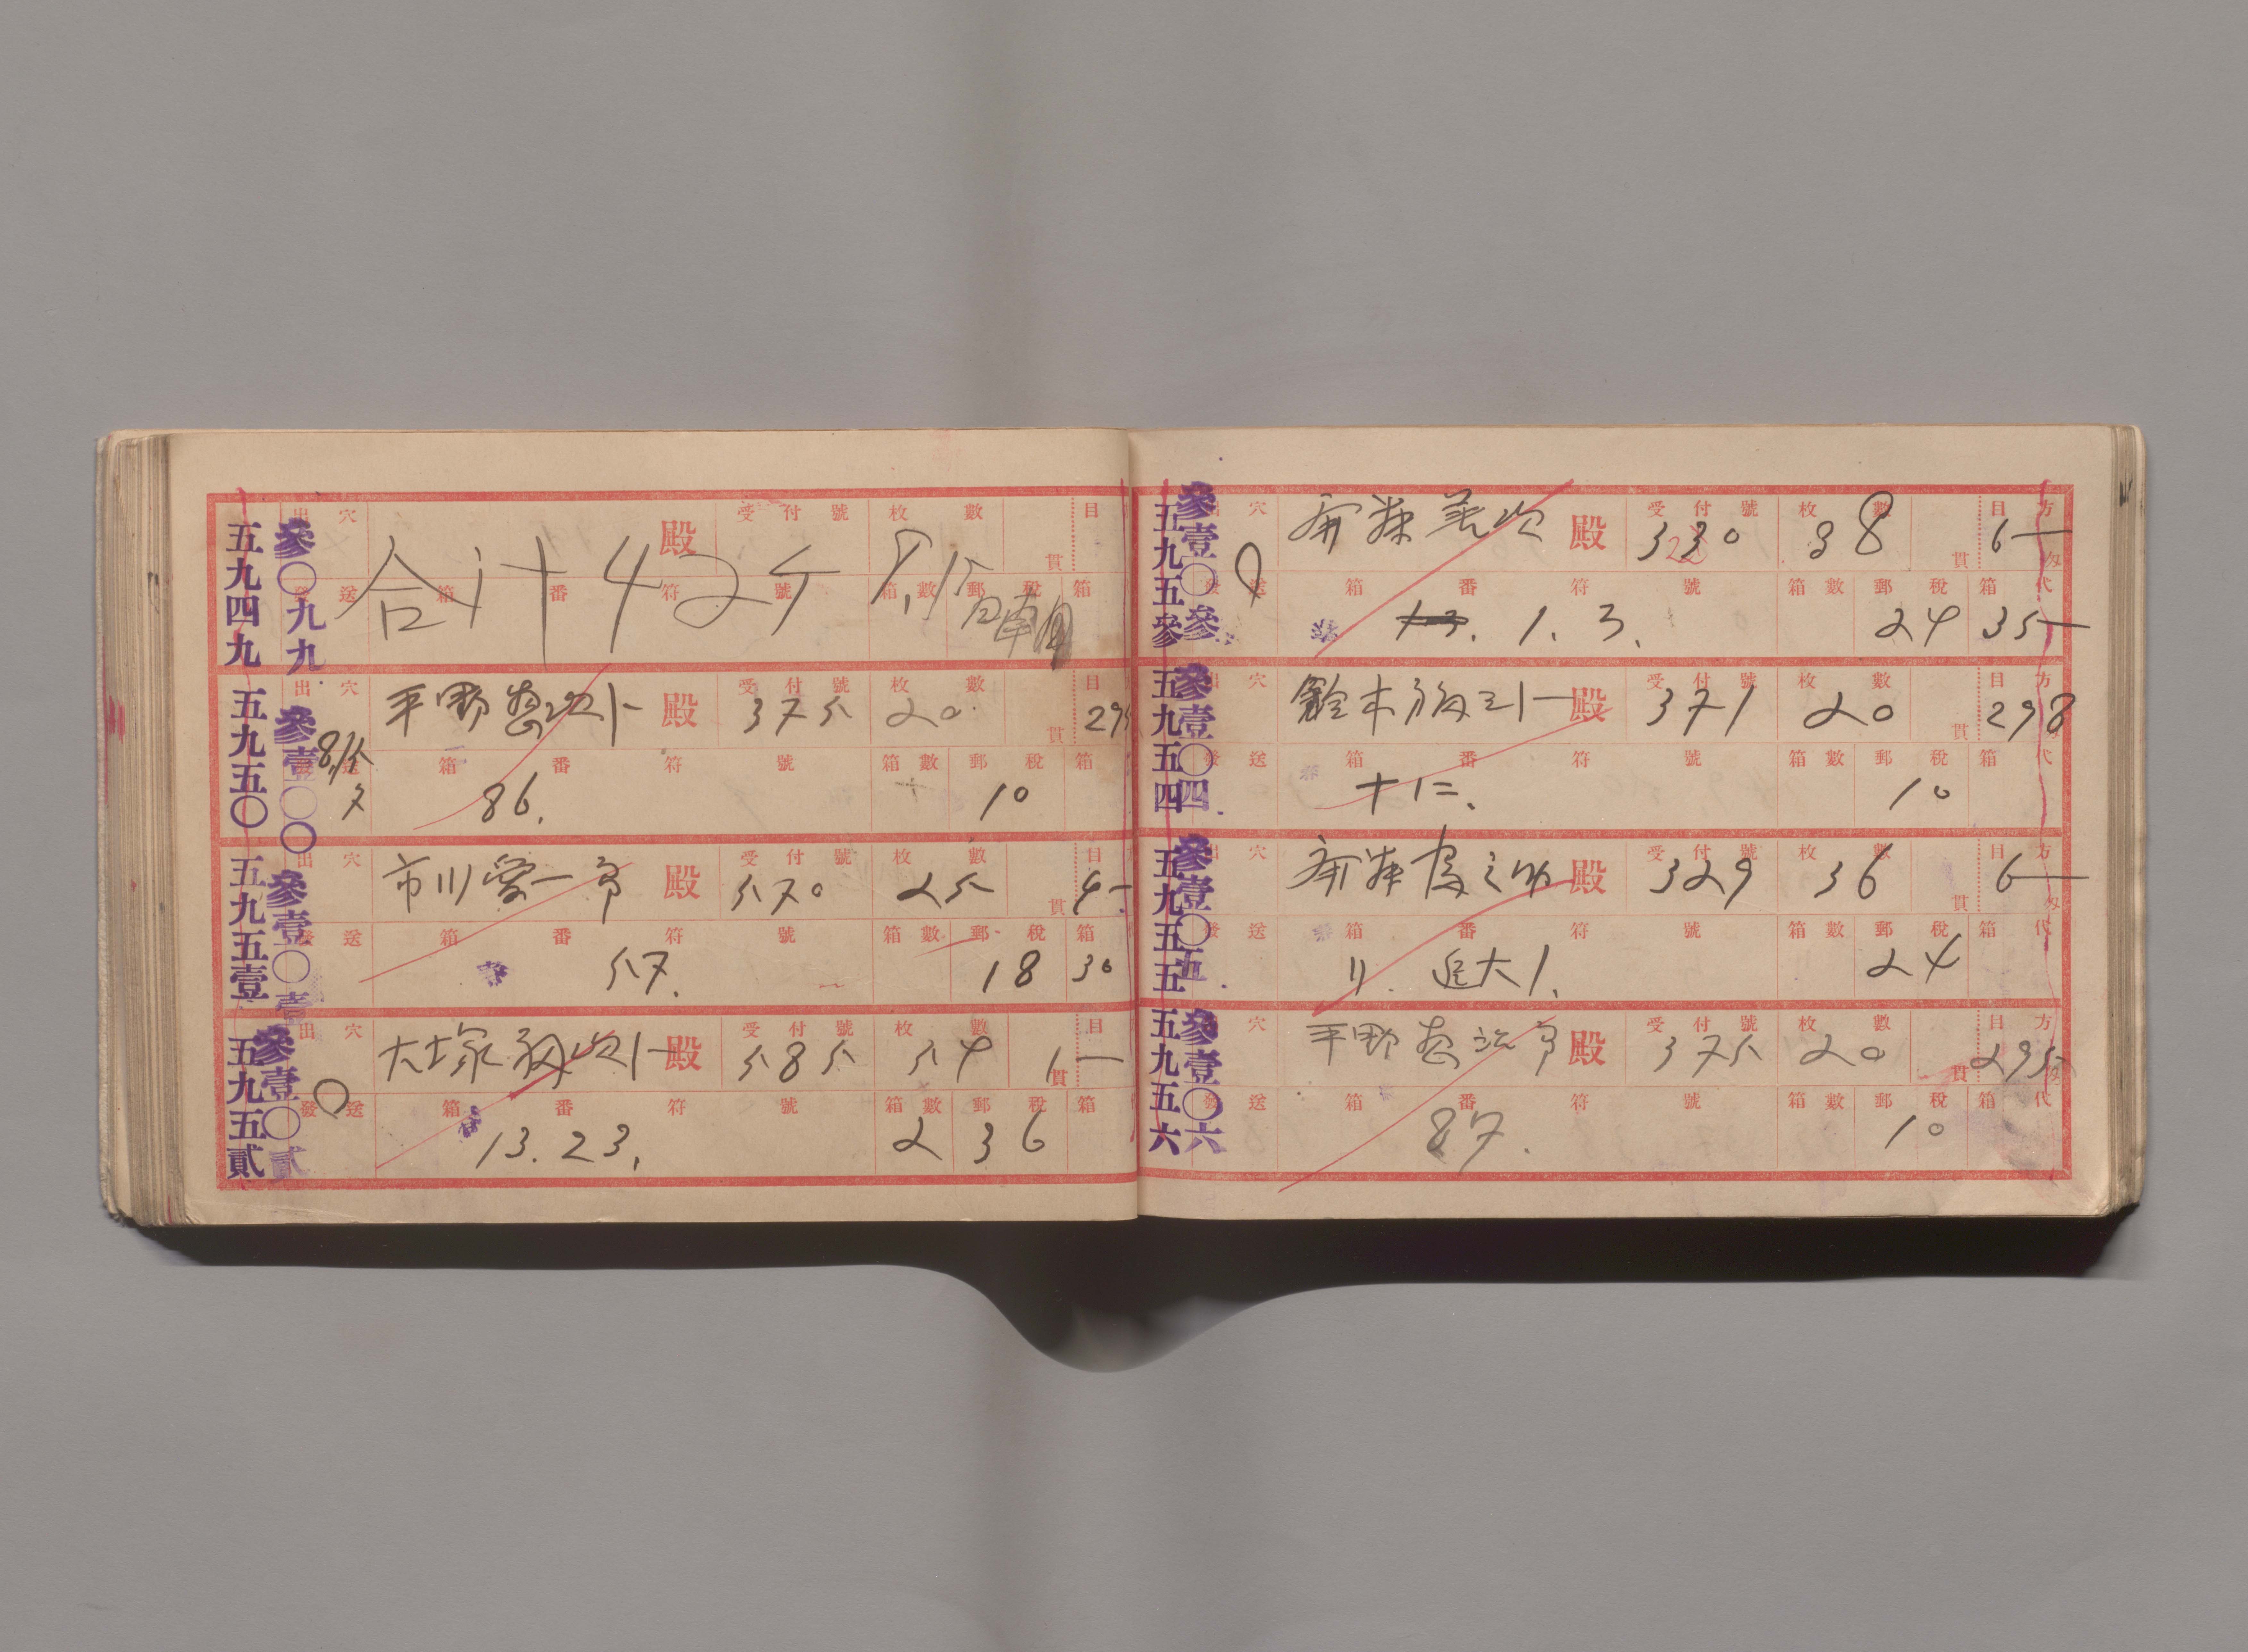 五九四九
參〇九九
出穴
殿
受付號
枚數
貫
目
發送
箱番符號
箱數
郵稅
箱
合計42ケ 8,15
五九五〇
參壹〇〇
出穴
平野
殿
受付號 375
枚數 20
貫
目 295
8,15
7
發送
箱番符號
86.
箱數
郵稅 10
箱
五九五壹
參壹〇壹
出穴
市川愛一郎
殿
受付號 570
枚數 25
貫
目 4-
發送
箱番符號
57.
箱數
郵稅 18
箱 30
五九五貳
參壹〇貳
出穴
大塚
殿
受付號 585
枚數 54
貫 1-
目
發送
箱番符號
13.23.
箱數 2
郵稅 36
箱
五九五參
參壹〇參
出穴
殿
受付號 330
枚數 38
貫
目方 6-
匁
發送
箱番符號
1.3.
箱數
郵稅 24
箱代 35-
五九五四
參壹〇四
出穴
鈴木
殿
受付號 371
枚數 20
貫
目方 298
發送
箱番符號
十仁.
箱數
郵稅 10
箱代
五九五五
參壹〇五
出穴
殿
受付號 329
枚數 36
貫
目方 6-
匁
發送
箱番符號
箱數
郵稅 24
箱代
五九五六
參壹〇六
出穴
平野
殿
受付號 375
枚數 20
貫
目方 295
匁
發送
箱番符號
87.
箱數
郵稅 10
箱代